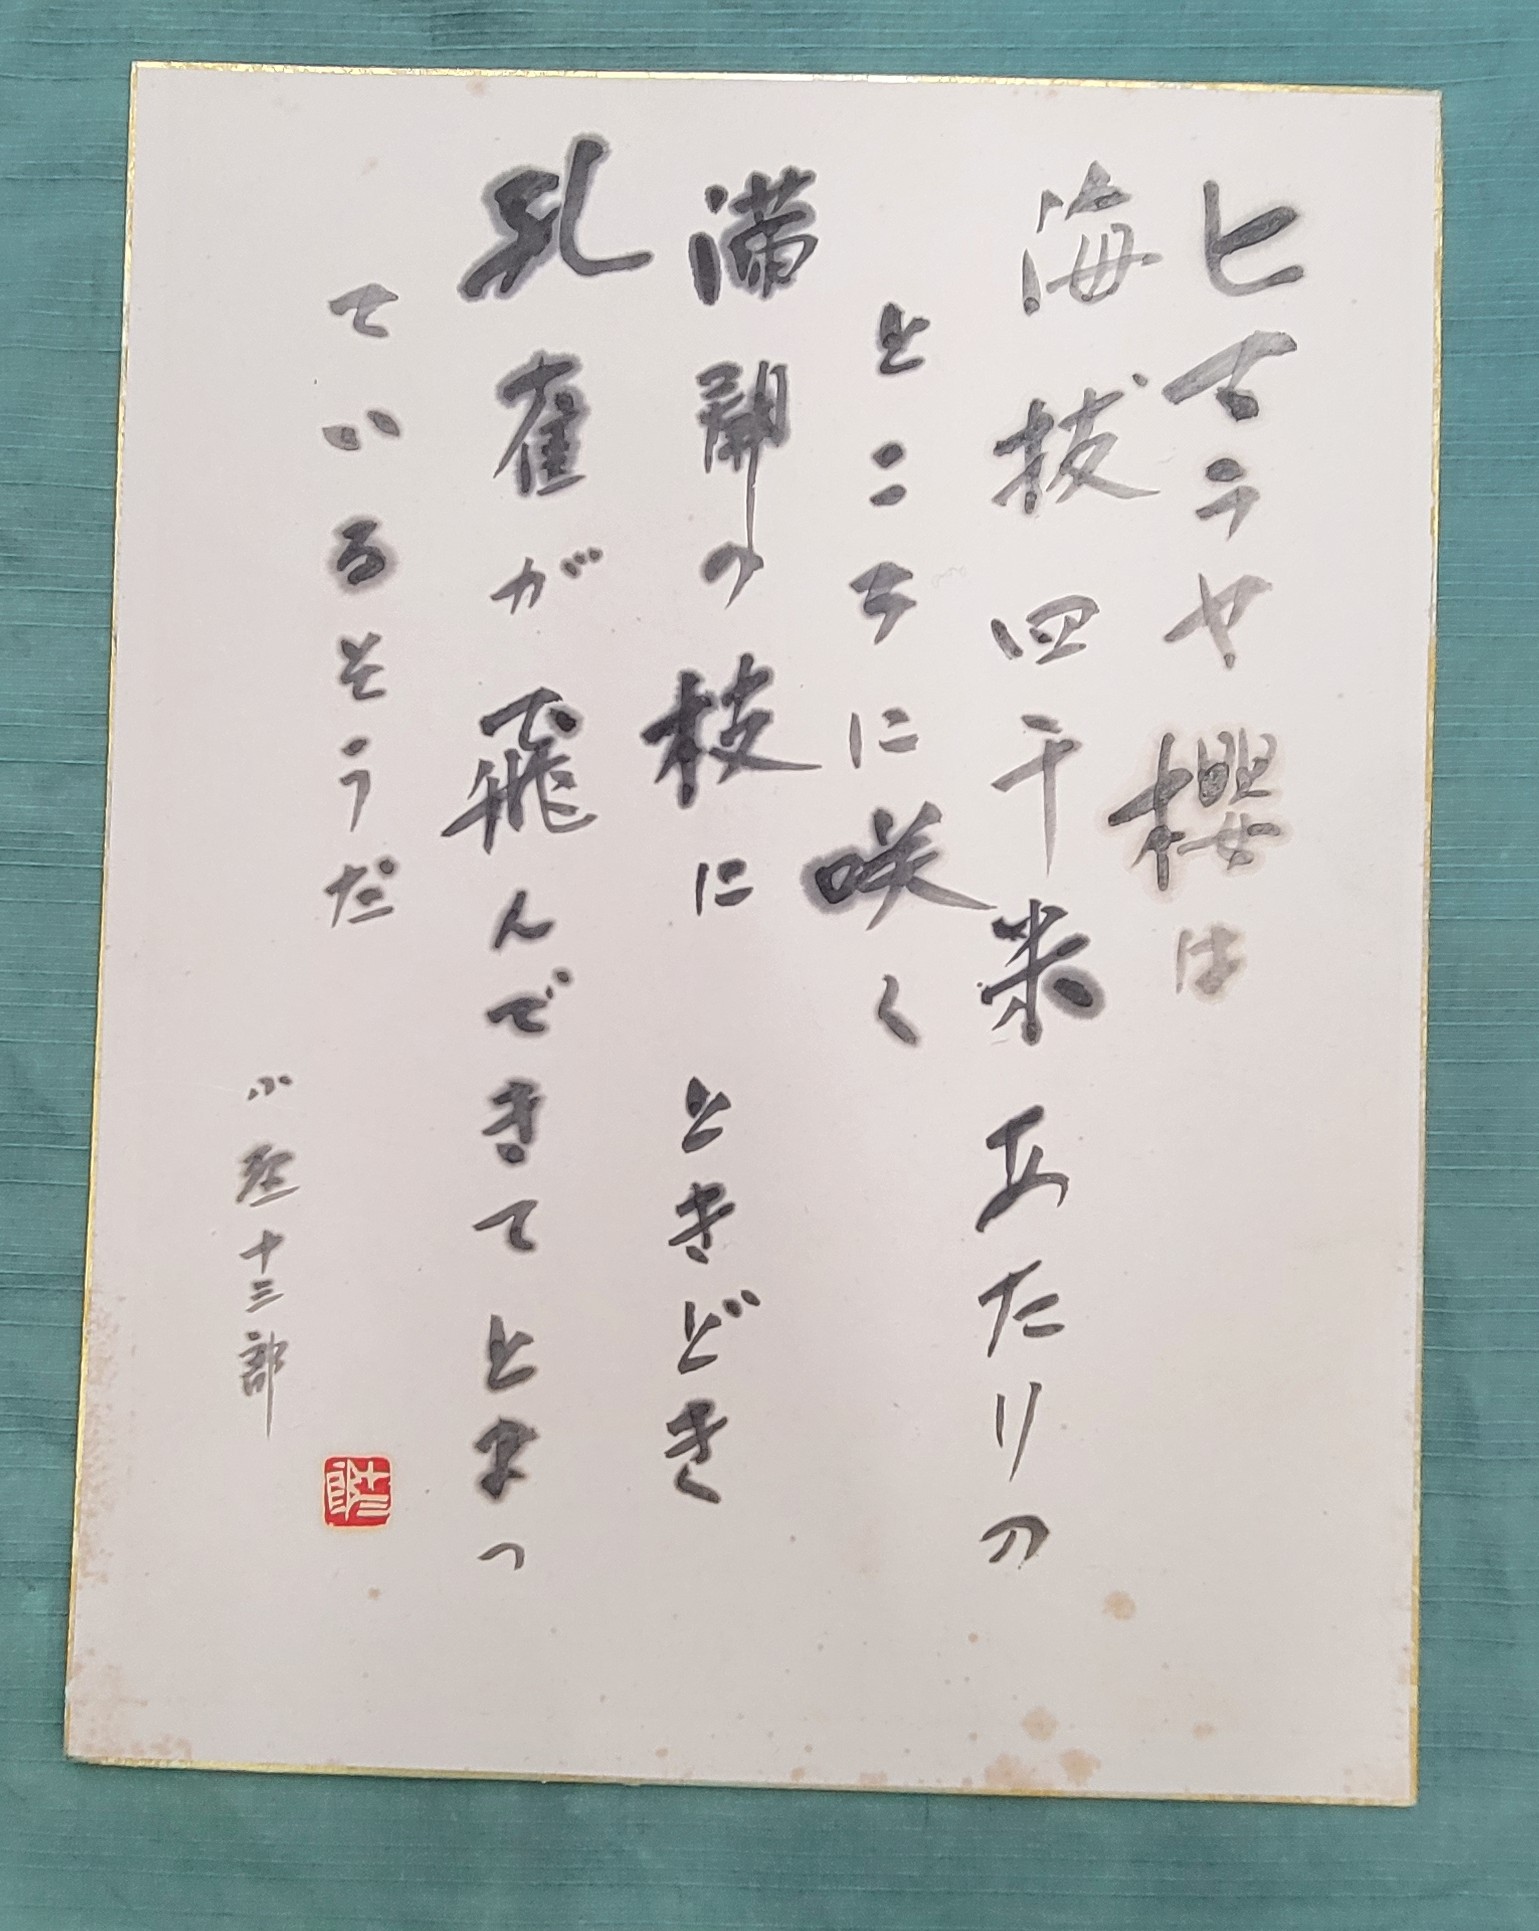 ヒマラヤ櫻は
海抜四千米あたりの
ところに咲く
満開の枝に　ときどき
孔雀が飛んできてとまっ
ているそうだ
小野十三郎
十三郎